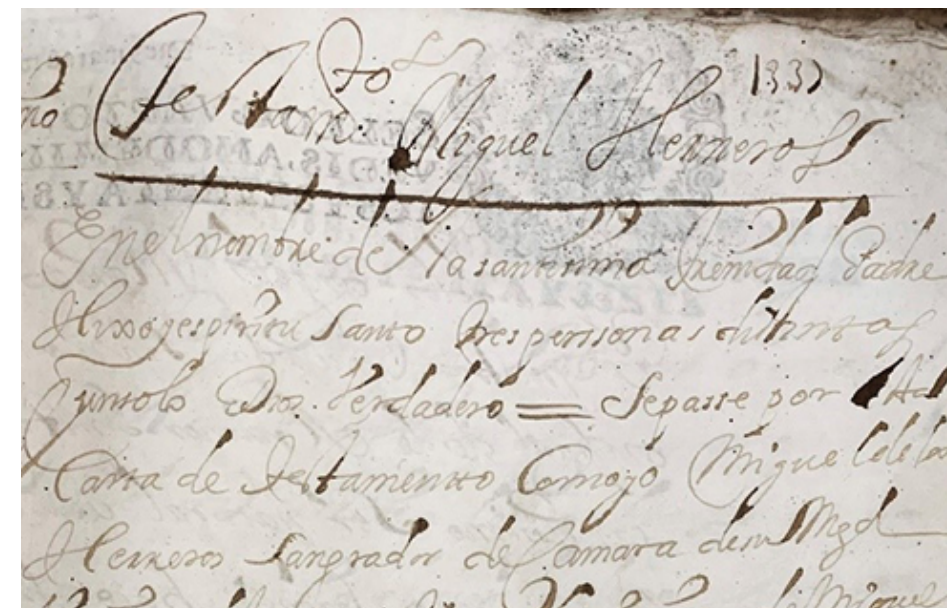 Testam.to
Miguel Herreros
En el nombre de la santissima trenidad Padre
Hixo y espiritu Santo tres personas distintas
y un solo Dios Verdadero = Sepasse por esta
Carta de testamentto Como yo Miguel de los
Herreros Sangrador de Camara de su Mgd
Miguel